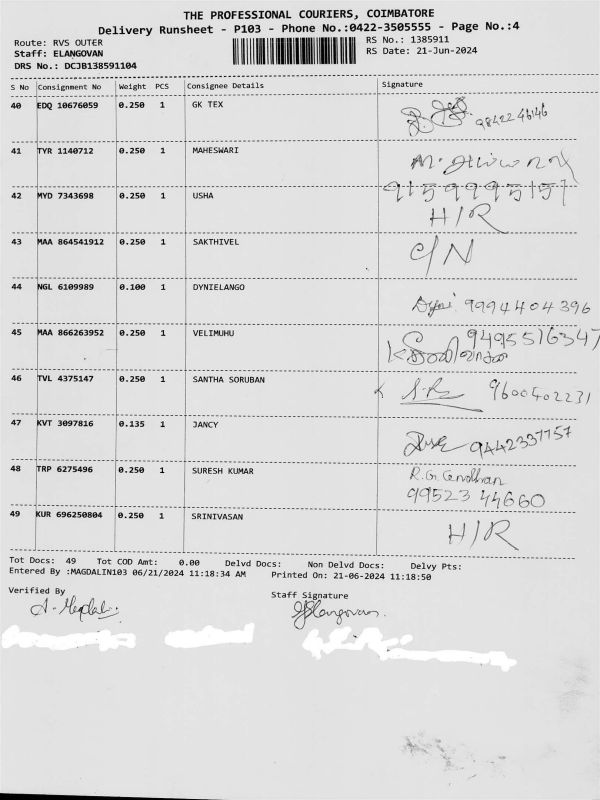 THE PROFESSIONAL COURIERS, COIMBATORE
Delivery Runsheet - P103 - Phone No.:0422-3505555 - Page No.:4
Route: RVS OUTER
RS No.: 1385911
Staff: ELANGOVAN
RS Date: 21-Jun-2024
DRS No.: DCJB138591104
S No Consignment No Weight PCS Consignee Details Signature
40 EDQ 10676059 0.250 1 GK TEX 9842246146
41 TYR 1140712 0.250 1 MAHESWARI
9159995157
42 MYD 7343698 0.250 1 USHA H/R
43 MAA 864541912 0.250 1 SAKTHIVEL C/N
44 NGL 6109989 0.100 1 DYNIELANGO 9994404396
45 MAA 866263952 0.250 1 VELIMUHU 9495516347
46 TVL 4375147 0.250 1 SANTHA SORUBAN 9600402231
47 KVT 3097816 0.135 1 JANCY 9442337757
48 TRP 6275496 0.250 1 SURESH KUMAR
99523 44660
49 KUR 696250804 0.250 1 SRINIVASAN H/R
Tot Docs: 49 Tot COD Amt: 0.00 Delvd Docs: Non Delvd Docs: Delvy Pts:
Entered By :MAGDALIN103 06/21/2024 11:18:34 AM Printed On: 21-06-2024 11:18:50
Verified By
Staff Signature